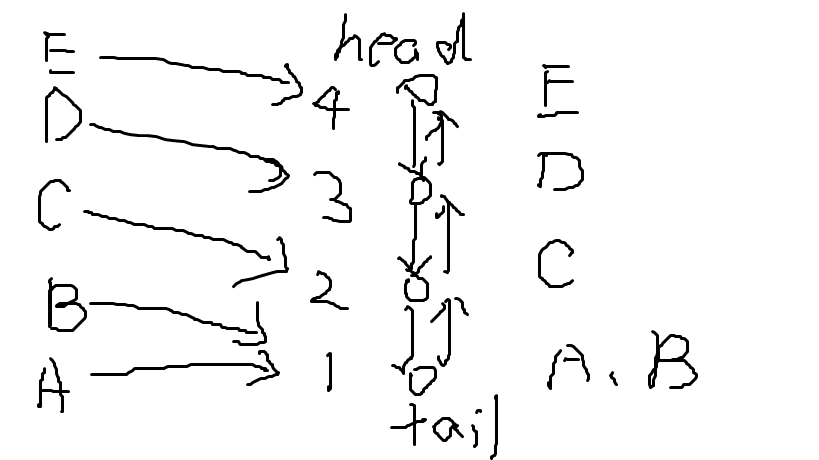 head
E 4 E
D 3 D
C 2 C
B
A 1 A、B
tail